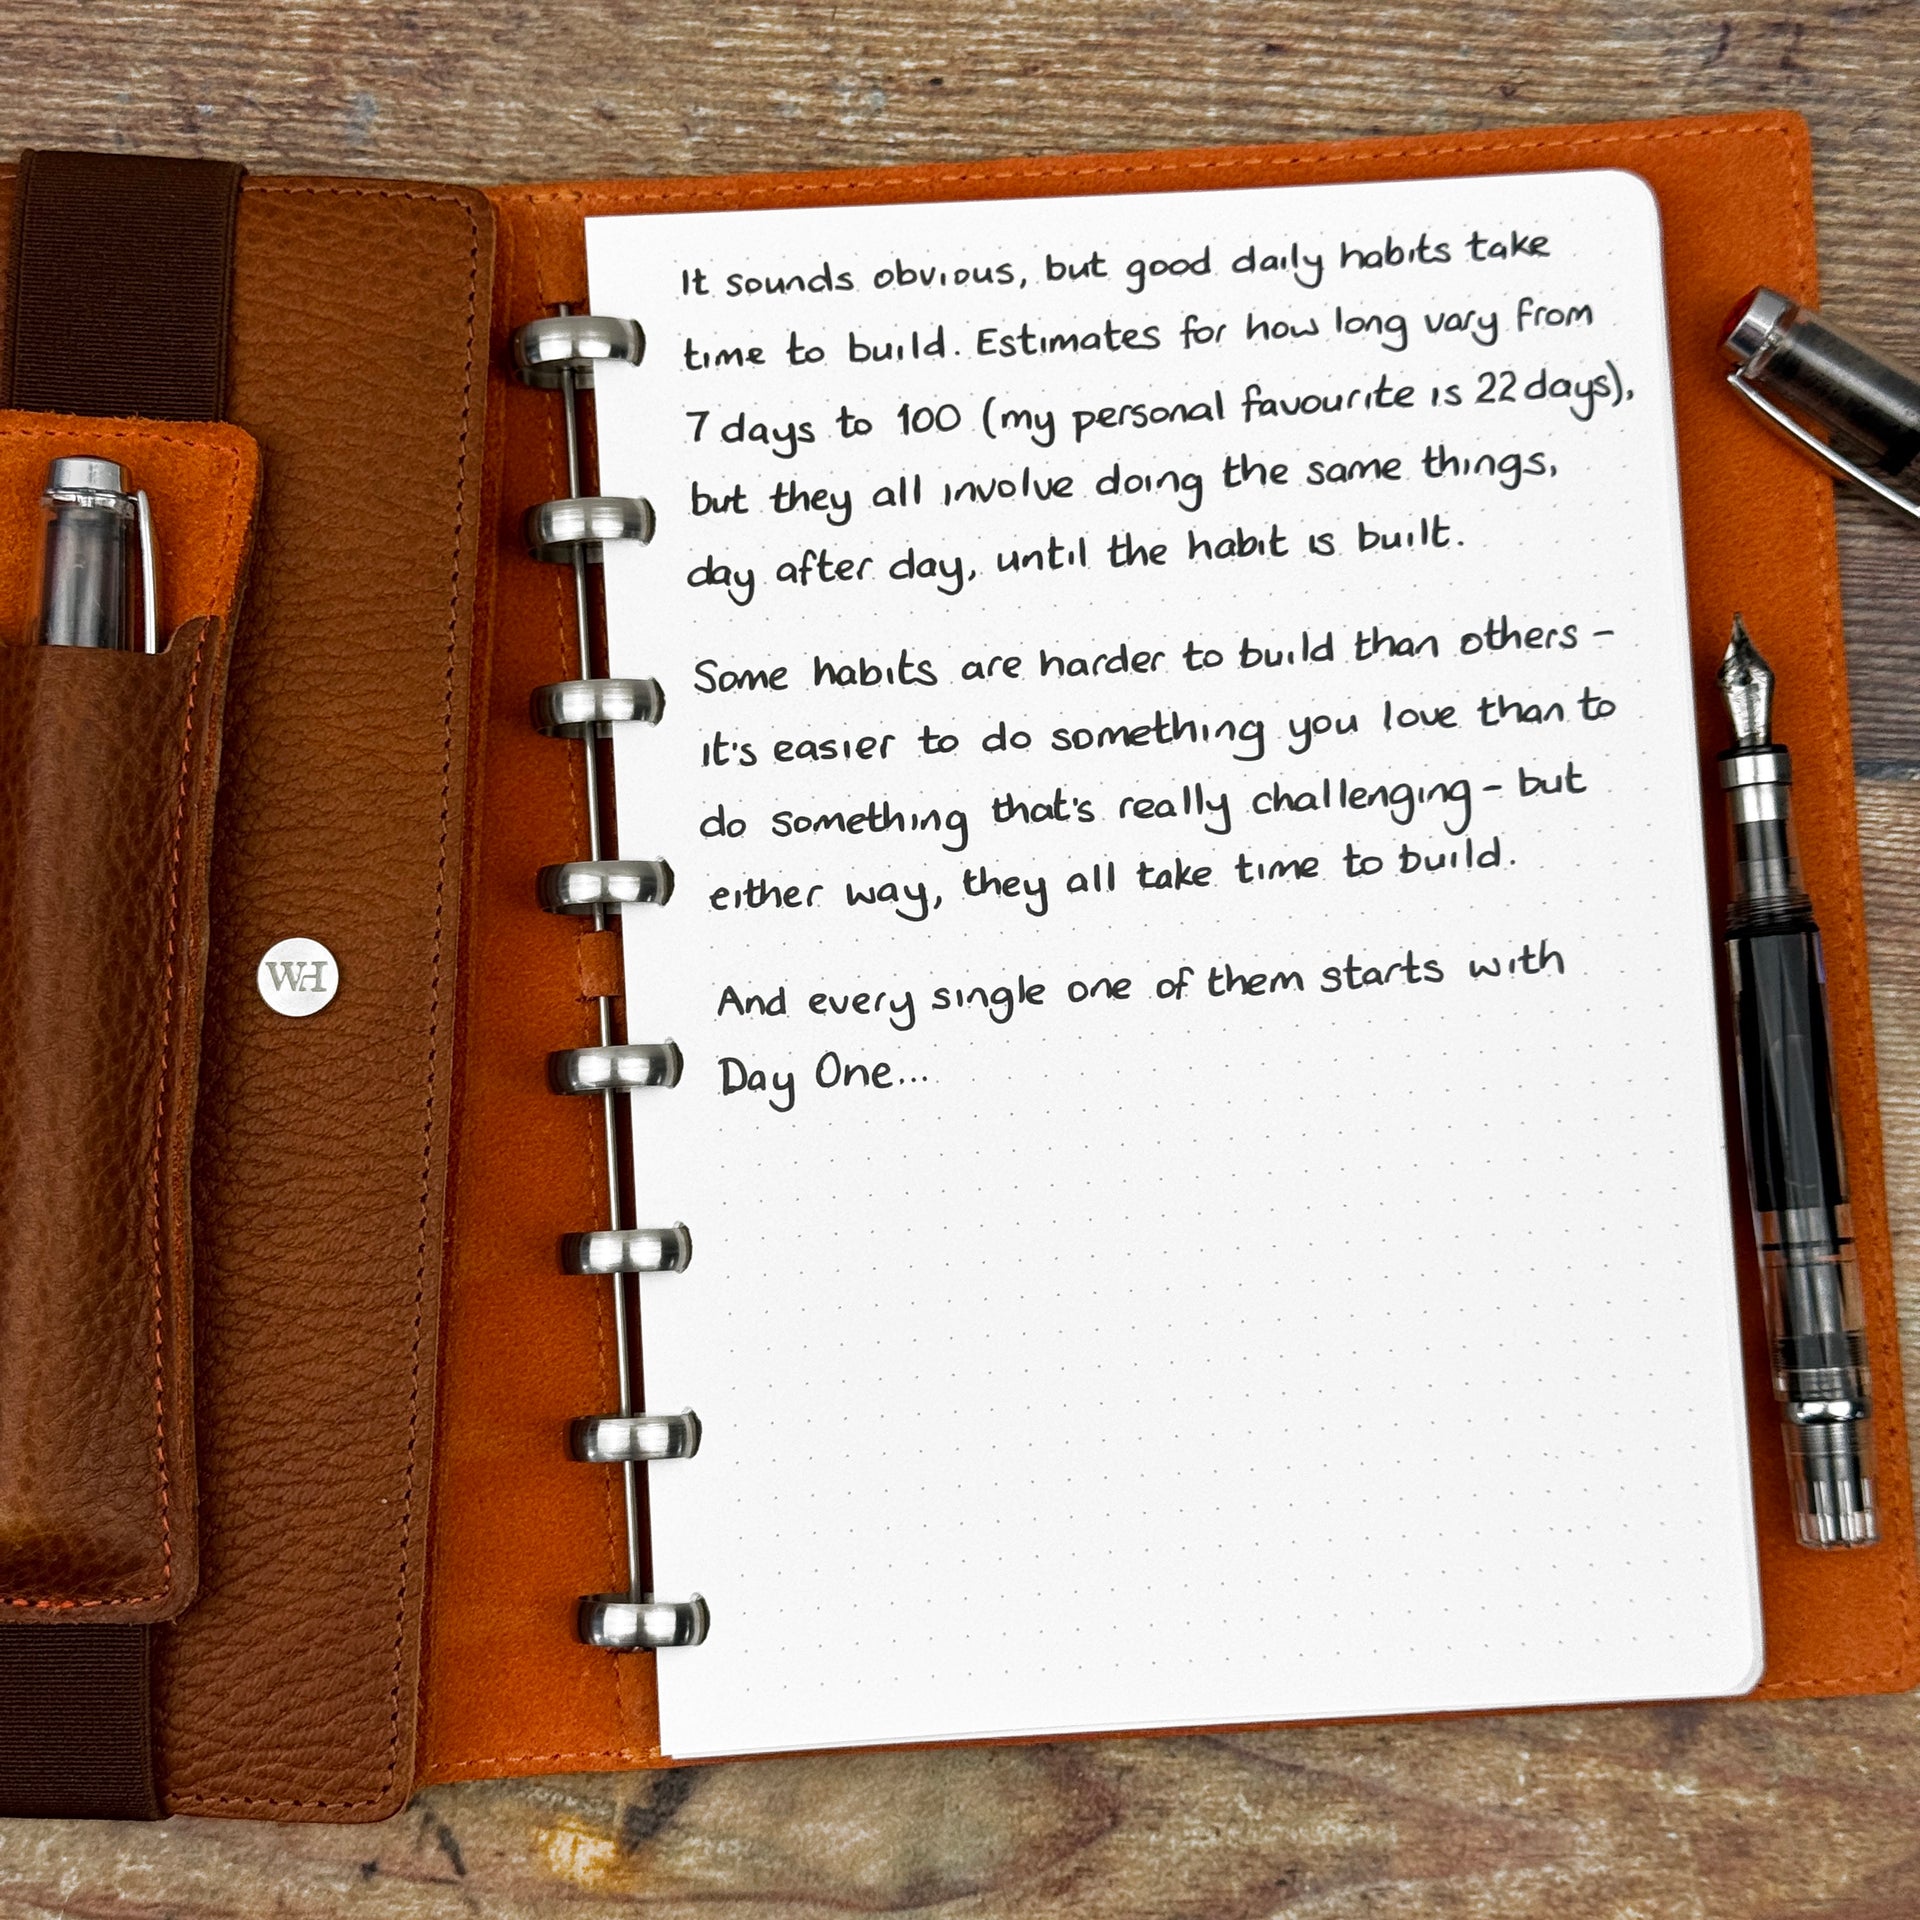 WH
It sounds obvious, but good daily habits take
time to build. Estimates for how long vary from
7 days to 100 (my personal favourite is 22 days),
but they all involve doing the same things,
day after day, until the habit is built.
Some habits are harder to build than others -
it's easier to do something you love than to
do something that's really challenging - but
either way, they all take time to build.
And every single one of them starts with
Day One...